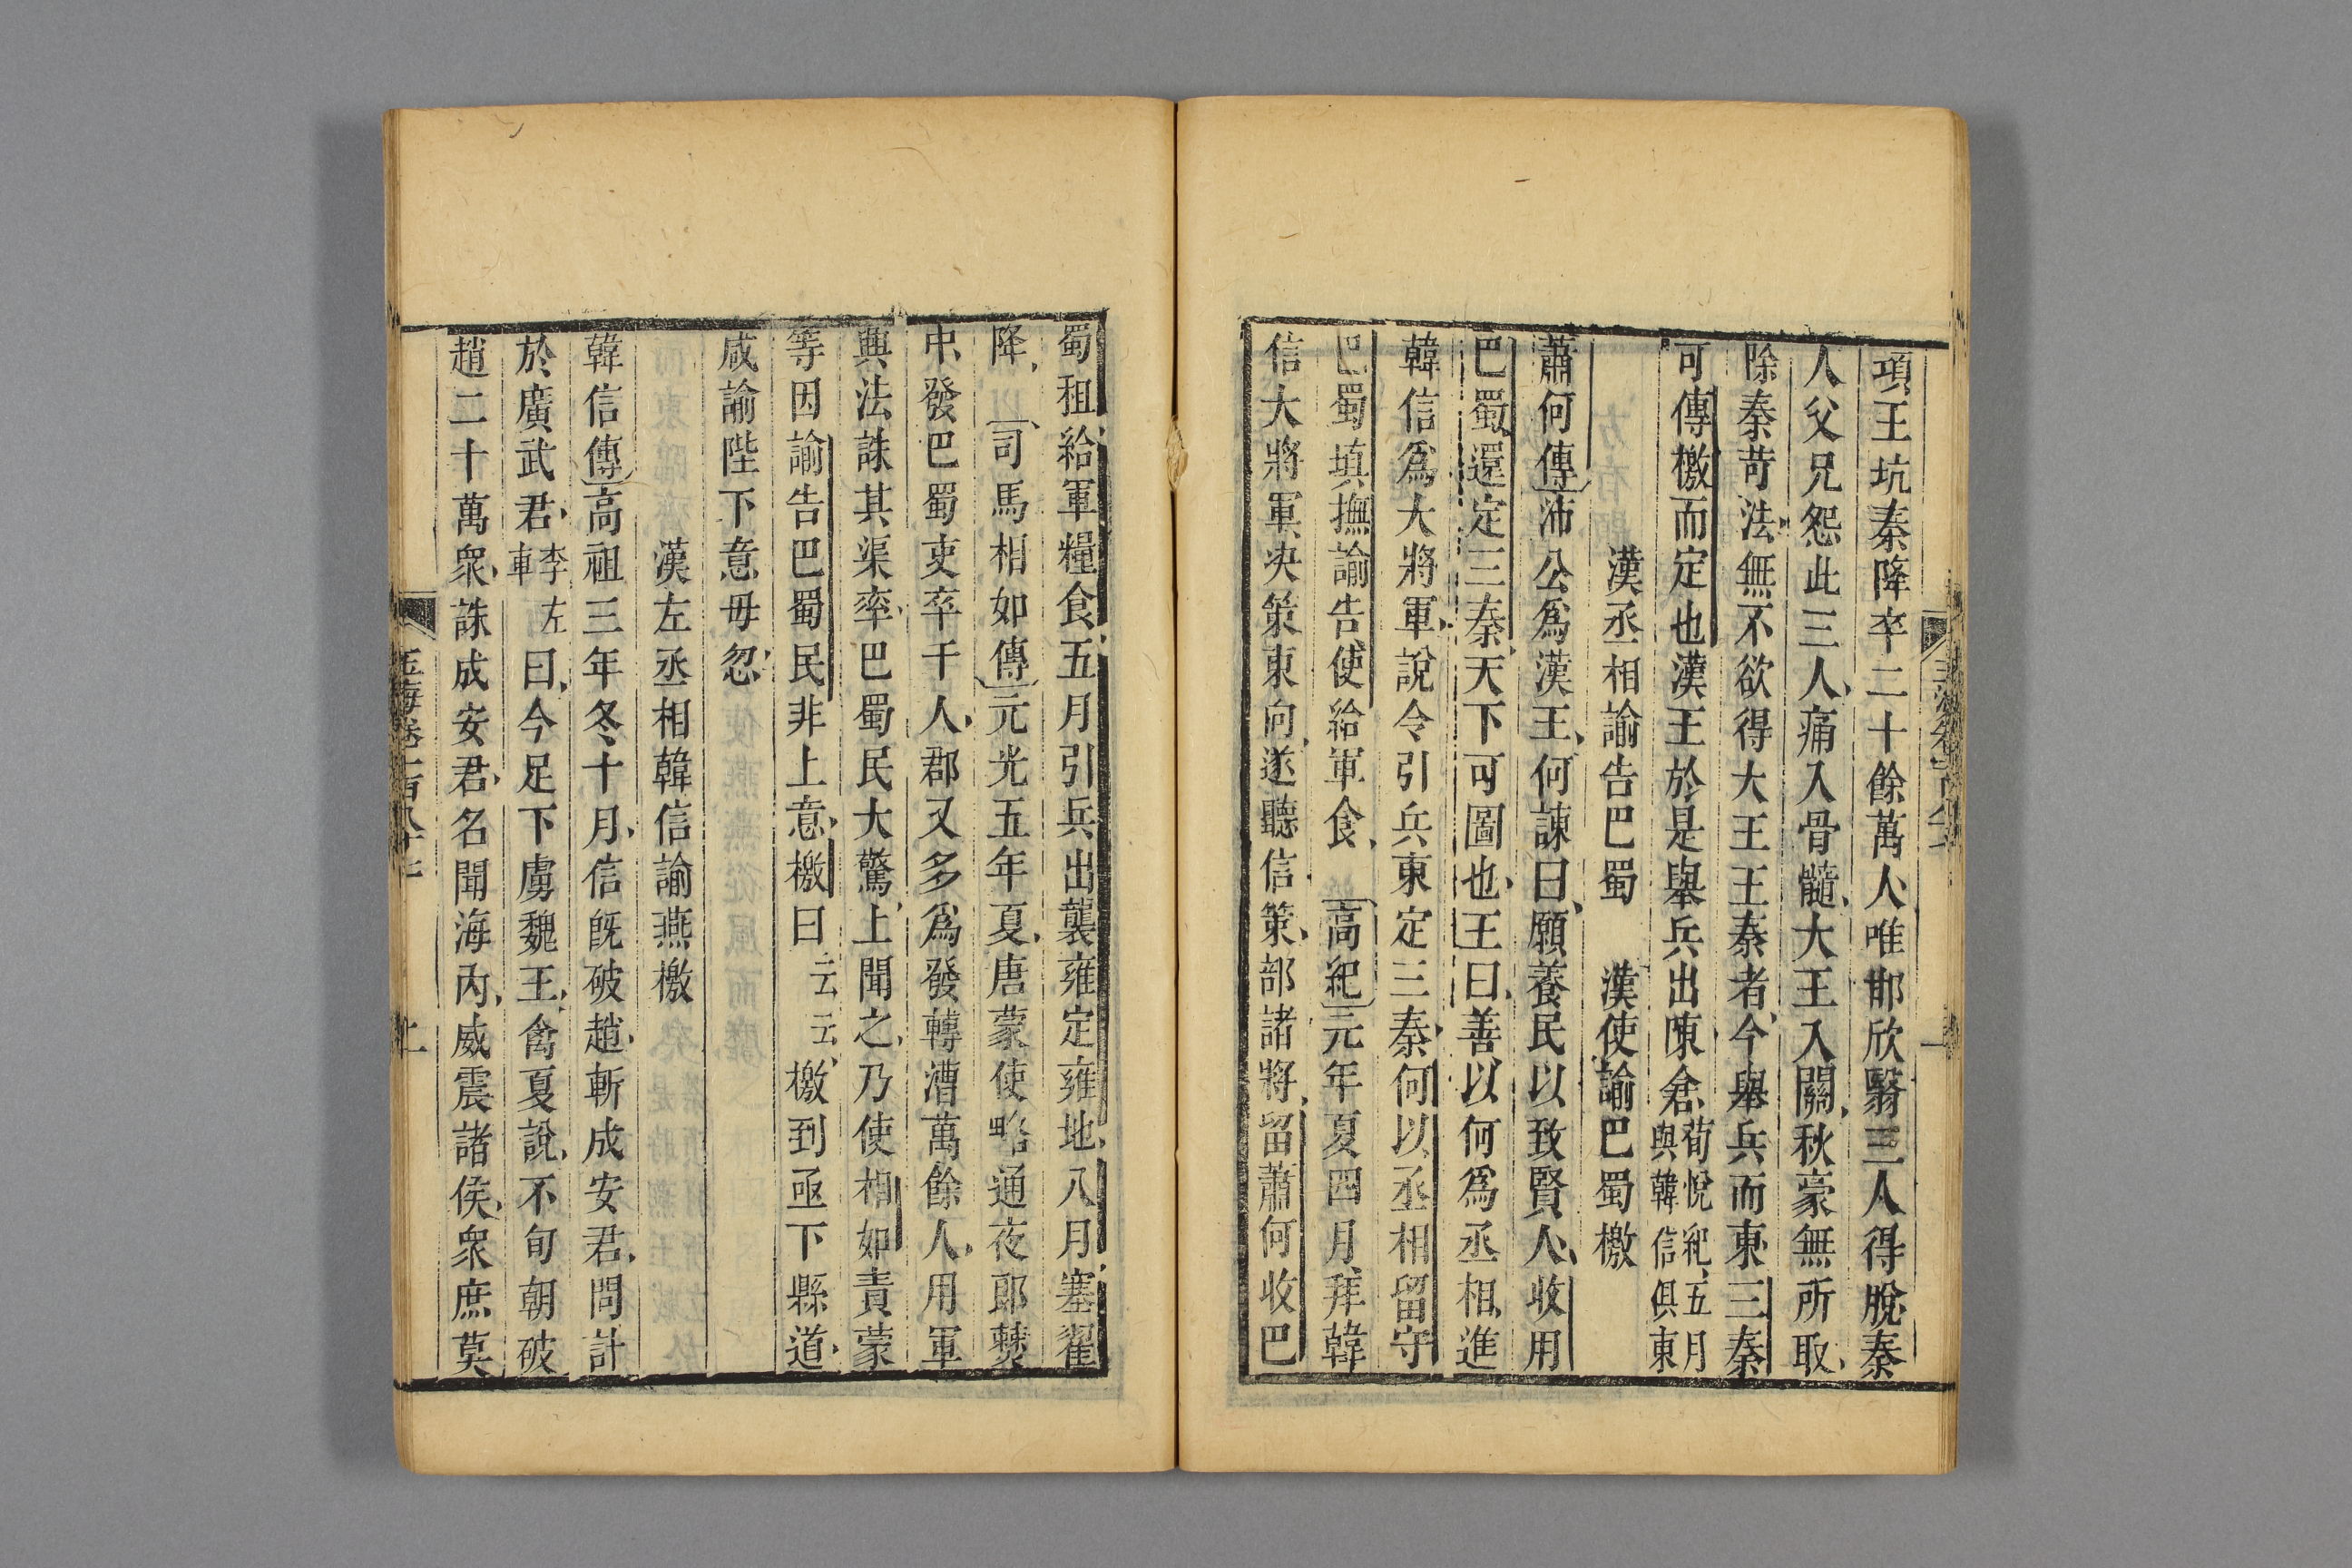 項王坑秦降卒二十餘萬人唯邯欣翳三人得脫秦
人父兄怨此三人痛入骨髓大王入關秋豪無所取
除秦苛法無不欲得大王王秦者今舉兵而東三秦
可傳檄而定也漢王於是舉兵出陳倉荀悅紀五月與韓信俱東
漢丞相諭告巴蜀　漢使諭巴蜀檄
蕭何傳沛公爲漢王何諫曰願養民以致賢人收用
巴蜀還定三秦天下可圖也王曰善以何爲丞相進
韓信爲大將軍說令引兵東定三秦何以丞相留守
巴蜀填撫諭告使給軍食　高紀元年夏四月拜韓
信大將軍決策東向遂聽信策部諸將留蕭何收巴
蜀租給軍糧食五月引兵出襲雍定雍地八月塞翟
降　司馬相如傳元光五年夏唐蒙使略通夜郎僰
中發巴蜀吏卒千人郡又多爲發轉漕萬餘人用軍
興法誅其渠率巴蜀民大驚上聞之乃使相如責蒙
等因諭告巴蜀民非上意檄曰云云檄到亟下縣道
咸諭陛下意毋忽
漢左丞相韓信諭燕檄
韓信傳高祖三年冬十月信既破趙斬成安君問計
於廣武君李左車曰今足下虜魏王禽夏說不旬朝破
趙二十萬衆誅成安君名聞海內威震諸侯衆庶莫
玉海卷一百八十七